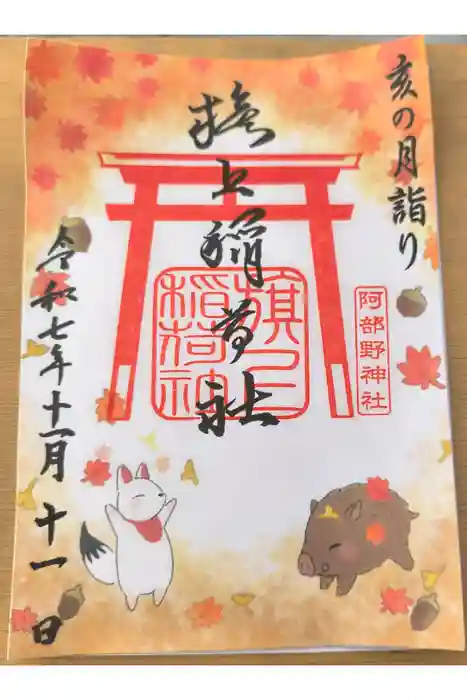 亥の月詣り
旗上稲荷社
旗上
稲荷神
阿部野神社
令和七年十一月十一日